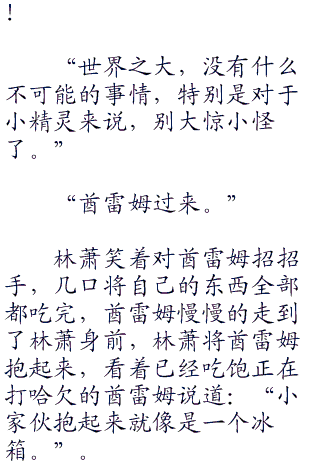 ！
“世界之大，没有什么
不可能的事情，特别是对于
小精灵来说，别大惊小怪
了。”
“酋雷姆过来。”
林萧笑着对酋雷姆招招
手，几口将自己的东西全部
都吃完，酋雷姆慢慢的走到
了林萧身前，林萧将酋雷姆
抱起来，看着已经吃饱正在
打哈欠的酋雷姆说道：“小
家伙抱起来就像是一个冰
箱。”。